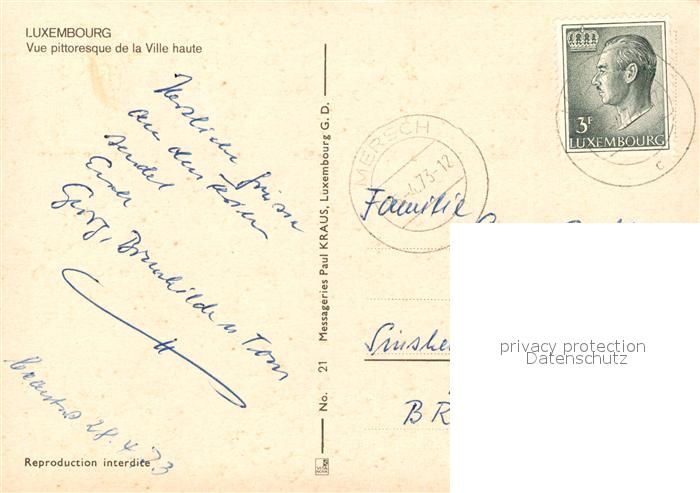 LUXEMBOURG
Vue pittoresque de la Ville haute
Herzliche Grüsse
aus den Ferien
sendet
Euch
Georg, Brunhilde u Tom
28.4.73
Reproduction interdite
No. 21 Messageries Paul KRAUS, Luxembourg G. D.
MERSCH
4.73-12
C
3F
LUXEMBOURG
Familie
Sinshe
BR
privacy protection
Datenschutz